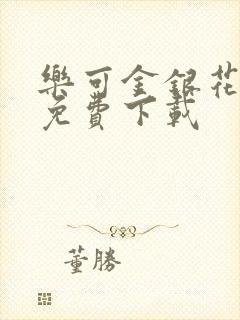 樂可金銀花
免費下載
董勝